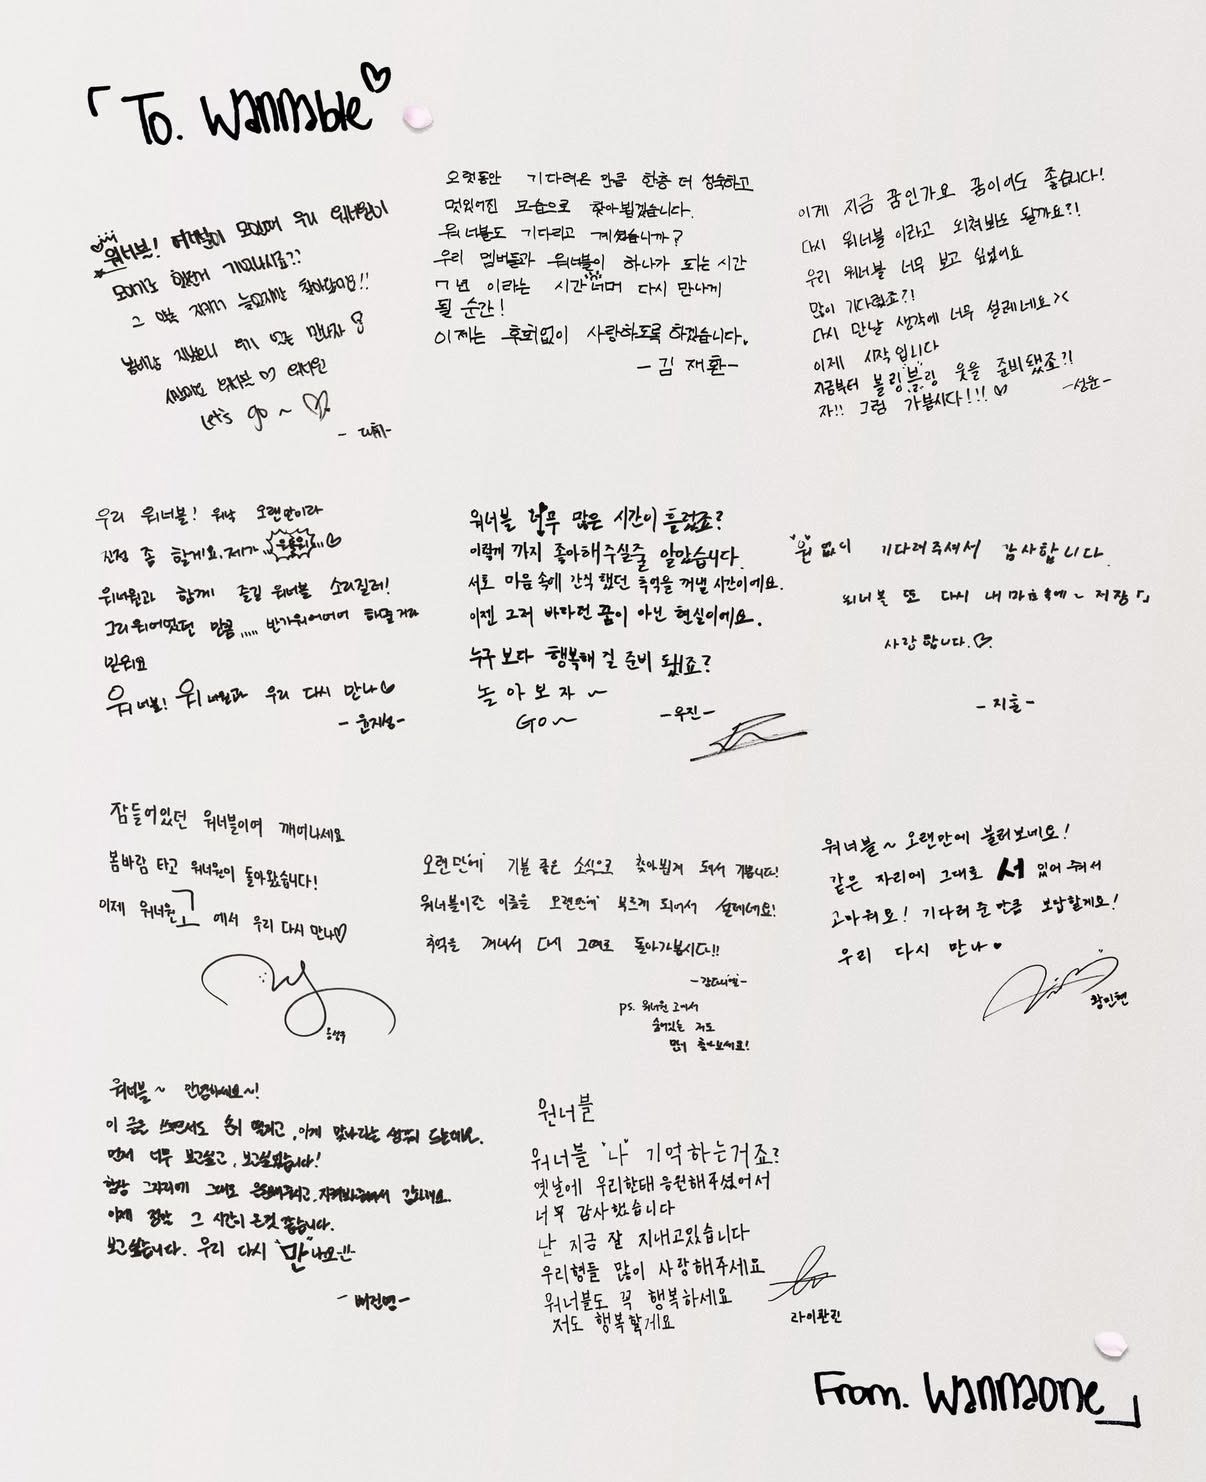 「To. Wannable♡
워너블! 여러분이 모일때 우리 워너원이
모이는
그 약속 지키기 늦었지만 찾아왔어요!!
봄바람 지났으니 여기 있는 만나자
워너블♡ 워너원
Let's go ~ ♡
-대휘-
오랫동안 기다려온 만큼 한층 더 성숙하고
멋있어진 모습으로 찾아뵙겠습니다.
워너블도 기다리고 계셨습니까?
우리 멤버들과 워너블이 하나가 되는 시간
7년 이라는 시간 너머 다시 만나게
될 순간!
이제는 후회없이 사랑하도록 하겠습니다.
-김재환-
이게 지금 꿈인가요 꿈이어도 좋습니다!
다시 워너블 이라고 외쳐봐도 될까요?!
우리 워너블 너무 보고 싶었어요
많이 기다렸죠?!
다시 만날 생각에 너무 설레네요><
이제 시작입니다
지금부터 블링블링 웃을 준비됐죠?!
자!! 그럼 가봅시다!!!♡
-성운-
우리 워너블! 워낙 오랜만이라
진정 좀 할게요. 제가 ...♡
워너원과 함께 즐길 워너블 소리질러!
그리워어었던 만큼,,,,, 반가워어어어 해줄거라
믿어요
워너블! 워너원과 우리 다시 만나♡
-윤지성-
워너블 너무 많은 시간이 흘렀죠?
이렇게 까지 좋아해주실줄 알았습니다.
서로 마음 속에 간직했던 추억을 꺼낼 시간이에요.
이젠 그저 바라던 꿈이 아닌 현실이에요.
누구 보다 행복해 질 준비 됐죠?
놀아보자~
GO~
-우진-
"윙" 없이 기다려주셔서 감사합니다.
워너블 또 다시 내 마음속에~ 저장「」
사랑합니다.♡
-지훈-
잠들어있던 워너블이여 깨어나세요
봄바람 타고 워너원이 돌아왔습니다!
이제 워너원 고 에서 우리 다시 만나♡
옹성우
오랜만에 기분 좋은 소식으로 찾아뵙게 되어서 기쁩니다!
워너블이란 이름을 오랜만에 부르게 되어서 설레네요!
추억을 꺼내서 다시 그때로 돌아가봅시다!!
-강다니엘-
ps. 워너원 고에서
숨어있는 저도
많이 찾아보세요!
워너블~ 오랜만에 불러보네요!
같은 자리에 그대로 서 있어 줘서
고마워요! 기다려 준 만큼 보답할게요!
우리 다시 만나♥
황민현
워너블~ 안녕하세요~!
이 글을 쓰면서도 손이 떨리고, 이게 맞나라는 생각이 드는데요.
먼저 너무 보고싶고, 보고싶었습니다!
항상 그자리에 그대로 응원해주시고, 지켜봐주셔서 감사해요.
이제 정말 그 시간이 온것 같습니다.
보고싶습니다. 우리 다시 "만"나요-!!-
-배진영-
원너블
워너블 "나" 기억하는거죠?
옛날에 우리한태 응원해주셨어서
너무 감사했습니다
난 지금 잘 지내고있습니다
우리형들 많이 사랑해주세요
워너블도 꼭 행복하세요
저도 행복할게요
라이관린
From. Wannaone」